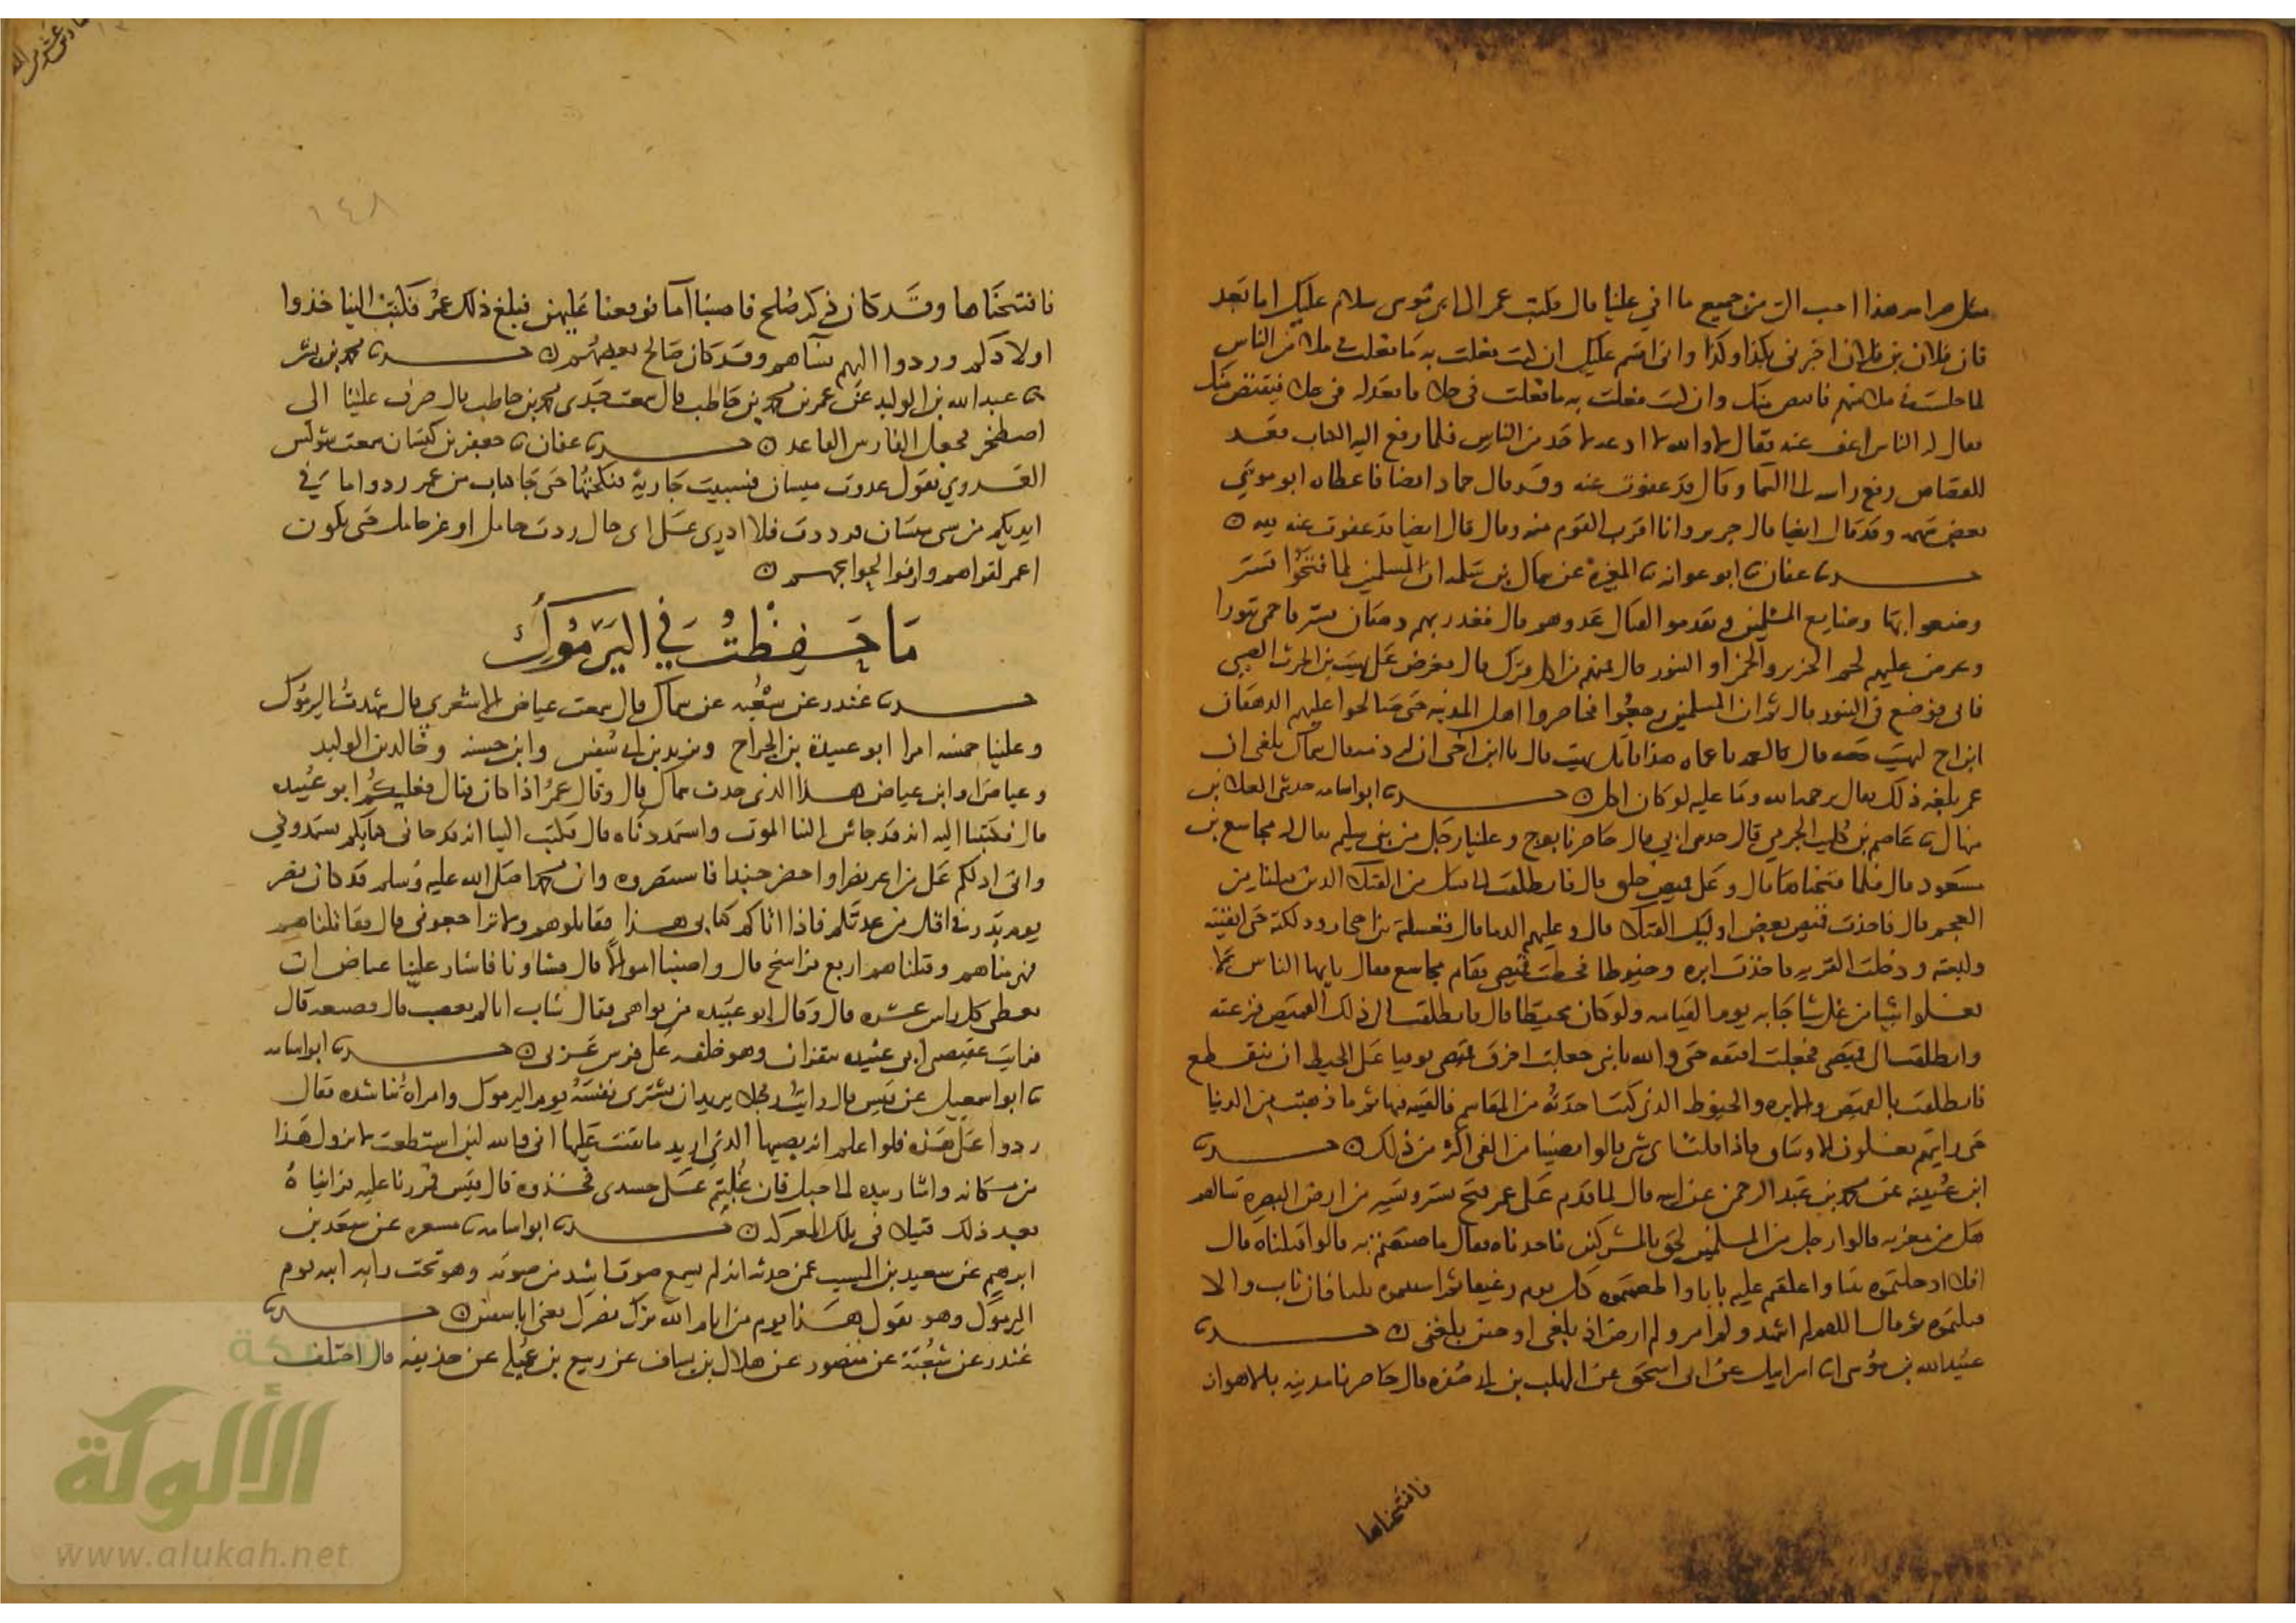 فان فلان بن فلان اخبرني بكذا وكذا وانى اقسم عليك ان كنت فعلت به ما فعلت في ملا من الناس
لما جلست في ملا منهم فاقتص منك وان كنت فعلت به ما فعلت في خلا فاقعد له في خلا فيقتص منك
فقال له الناس اعف عنه فقال لا والله لا ادعه لاحد من الناس فلما دفع اليه الكتاب قعد
للقصاص رفع راسه الى السما وقال قد عفوت عنه وقد قال حماد ايضا فاعطاه ابو موسى
بعض سهمه وقد قال ايضا قال جرير وانا اقرب القوم منه وقال قال ايضا قد عفوت عنه لله
حدثنا عفان ثنا ابو عوانه ثنا المغيرة عن سماك بن سلمه ان المسلمين لما فتحوا تستر
وضعوا بها وضايع المسلمين وتقدموا لقتال عدوهم قال فغدر بهم دهقان تستر فاحمى تنورا
وعرض عليهم لحم الخنزير والخمر او التنور قال فمنهم من اكل فترك قال فعرض على نهيت بن الحرث الضبي
فابى فوضع في التنور قال ثم ان المسلمين رجعوا فحاصروا اهل المدينه حتى صالحوا عليهم الدهقان
ابن اخ لنهيت لعمه قال له يا عماه هذا قاتل نهيت قال يا ابن اخي ان له ذمه قال سماك بلغني ان
عمر بلغه ذلك فقال يرحمه الله وما عليه لو كان اكل حدثنا ابو اسامه حدثنى العلا بن
منهال ثنا عاصم بن كليب الجرمي قال حدثنى ابي قال حاصرنا توج وعلينا رجل من بني سليم يقال له مجاشع بن
مسعود قال فلما فتحناها قال وعلى قميص خلق قال فانطلقت الى قتيل من القتلى الذين قتلنا من
العجم قال فاخذت قميص بعض اوليك القتلى قال وعليهم الدما قال فغسلته بين احجار ودلكته حتى انقيته
ولبسته ودخلت القريه فاخذت ابره وخيوطا فخطت قميصى فقام مجاشع فقال يايها الناس لا
تغلوا شيا من غل شيا جا به يوم القيامه ولو كان مخيطا قال فانطلقت الى ذلك القميص فنزعته
وانطلقت الى قميصى فجعلت افتقه حتى والله يا بنى جعلت اخرق قميصي توقيا على الخيط ان ينقطع
فانطلقت بالقميص والابره والخيوط الذى كنت اخذته من المقاسم فالقيته فيها ثم ما ذهبت من الدنيا
حتى رايتهم يغلون الاوساق فاذا قلت اى شي قالوا نصيبنا من الفي اكثر من ذلك حدثنا
ابن عيينه عن محمد بن عبد الرحمن عن ابيه قال لما قدم على عمر فتح تستر وتستر من ارض البصره سالهم
هل من مغربه قالوا رجل من المسلمين لحق بالمشركين فاخذناه فقال ما صنعتم به قالوا قتلناه قال
افلا ادخلتموه بيتا واغلقتم عليه بابا واطعمتموه كل يوم رغيفا ثم استتبتموه ثلثا فان تاب والا
قتلتموه ثم قال اللهم لم اشهد ولم امر ولم ارض اذ بلغني او حين بلغني حدثنا
عبيد الله بن موسى انا اسرايل عن ابى اسحق عن المهلب بن ابى صفره قال حاصرنا مدينه بالاهواز
فافتتحناها
١٤٨
فافتتحناها وقد كان ذكر صلح فاصبنا اما فوقعنا عليهن فبلغ ذلك عمر فكتب الينا خذوا
اولادكم وردوا اليهم نساهم وقد كان صالح بعضهم حدثنا محمد بن بشر
ثنا عبد الله بن الوليد عن عمر بن محمد بن حاطب قال سمعت جدى محمد بن حاطب قال ضرب علينا الى
اصطخر فجعل الفارس القاعد حدثنا عفان ثنا جعفر بن كيسان سمعت شويس
العدوي يقول غدوت ميسان فسبيت جارية فنكحتها حتى جا كتاب من عمر ردوا ما في
ايديكم من سبى ميسان فرددت فلا ادرى على اى حال ردت حامل او غير حامل حتى يكون
اعمر لقراهم واوفر لخراجهم
مَا حَفِظْتُ فِي اليَرمُوك
حدثنا غندر عن شعبه عن سماك قال سمعت عياض الاشعري قال شهدت اليرموك
وعلينا خمسه امرا ابو عبيدة بن الجراح ويزيد بن ابى سفين وابن حسنه وخالد بن الوليد
وعياض وليس عياض هذا الذى حدث سماك قال وقال عمر اذا كان قتال فعليكم ابو عبيده
قال فكتبنا اليه انه قد جاش الينا الموت واستمددناه قال فكتب الينا انه قد جانى كتابكم تستمدوني
وانى ادلكم على من اعز نصرا واحضر جندا فاستنصروه وان محمدا صلى الله عليه وسلم قد كان نصر
يوم بدر في اقل من عدتكم فاذا اتاكم كتابى هذا فقاتلوهم ولا تراجعونى قال فقاتلناهم
فهزمناهم وقتلناهم اربع فراسخ قال واصبنا اموالا قال فتشاورنا فاشار علينا عياض ان
نعطى كل راس عشره قال وقال ابو عبيده من يراهنى فقال شاب انا ان لم تغضب قال فسبقه قال
فرايت عقيصتى ابى عبيده تنقزان وهو خلفه على فرس عربي حدثنا ابو اسامه
ثنا ابو اسمعيل عن قيس قال رايت رجلا يريد ان يشترى نفسه يوم اليرموك وامراة تناشده فقال
ردوا على هذه فلو اعلم انه يصيبها الذي اريد ما نفست عليها انى والله لين استطعت لا يزول هذا
من مكانه واشار بيده الى جبل فان غلبتم على جسدى فخذوه قال قيس فمررنا عليه فرايناه
بعد ذلك قتيلا فى تلك المعركه حدثنا ابو اسامه ثنا مسعر عن سعد بن
ابرهيم عن سعيد بن المسيب عمن حدثه انه لم يسمع صوت اشد من صوته وهو تحت رايه ابنه يوم
اليرموك وهو يقول هذا يوم من ايام الله نزل نصرك يعنى ابا سفين حدثنا
غندر عن شعبة عن منصور عن هلال بن يساف عن ربيع بن عميله عن حذيفه قال اختلف
شبكة
الألوكة
www.alukah.net